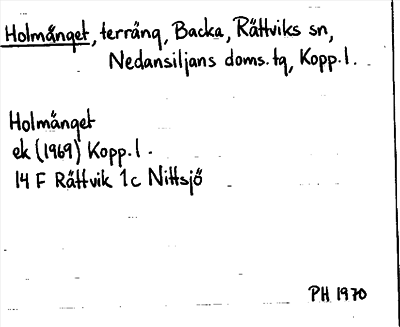 Holmänget, terräng, Backa, Rättviks sn,
Nedansiljans doms.tg, Kopp.l.
Holmänget
ek (1969) Kopp.l.
14 F Rättvik 1c Nittsjö
PH 1970